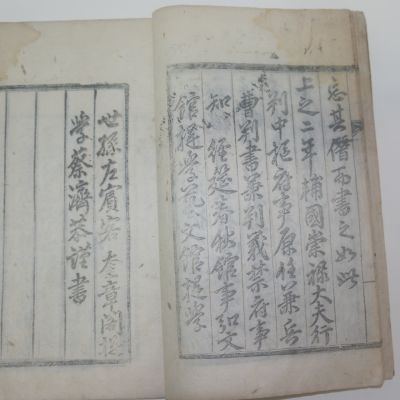 忘其僭而書之如此
上之二年 輔國崇祿大夫行
判中樞府事原任兼兵
曹判書兼判義禁府事
知 經筵春秋館事弘文
館提學藝文館提學
世孫左賓客奎章閣提
學蔡濟恭謹書